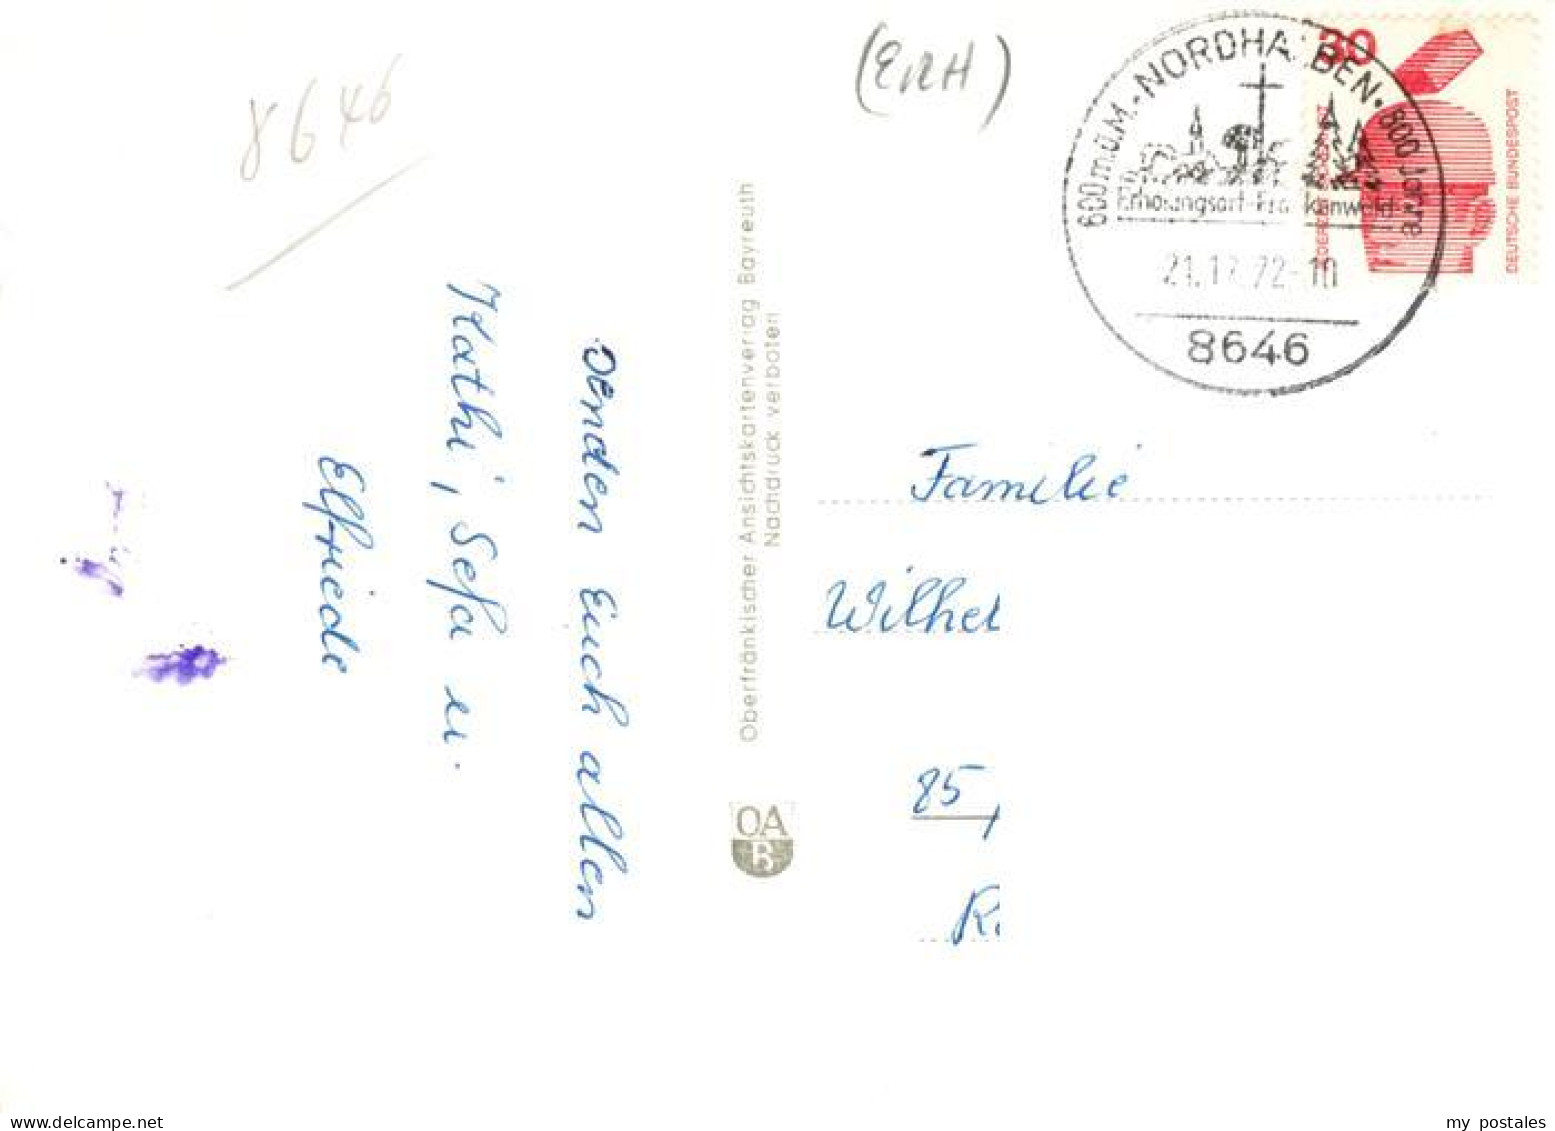 8646
(ERH)
600 m.ü.M. · NORDHALBEN · 800 Jahre
Erholungsort Frankenwald
21.12.72-10
8646
30
DEUTSCHE BUNDESPOST
senden Euch allen
Kathi, Sefa u.
Elfriede
Oberfränkischer Ansichtskartenverlag Bayreuth
Nachdruck verboten
OA
B
Familie
Wilhel
85
my postales